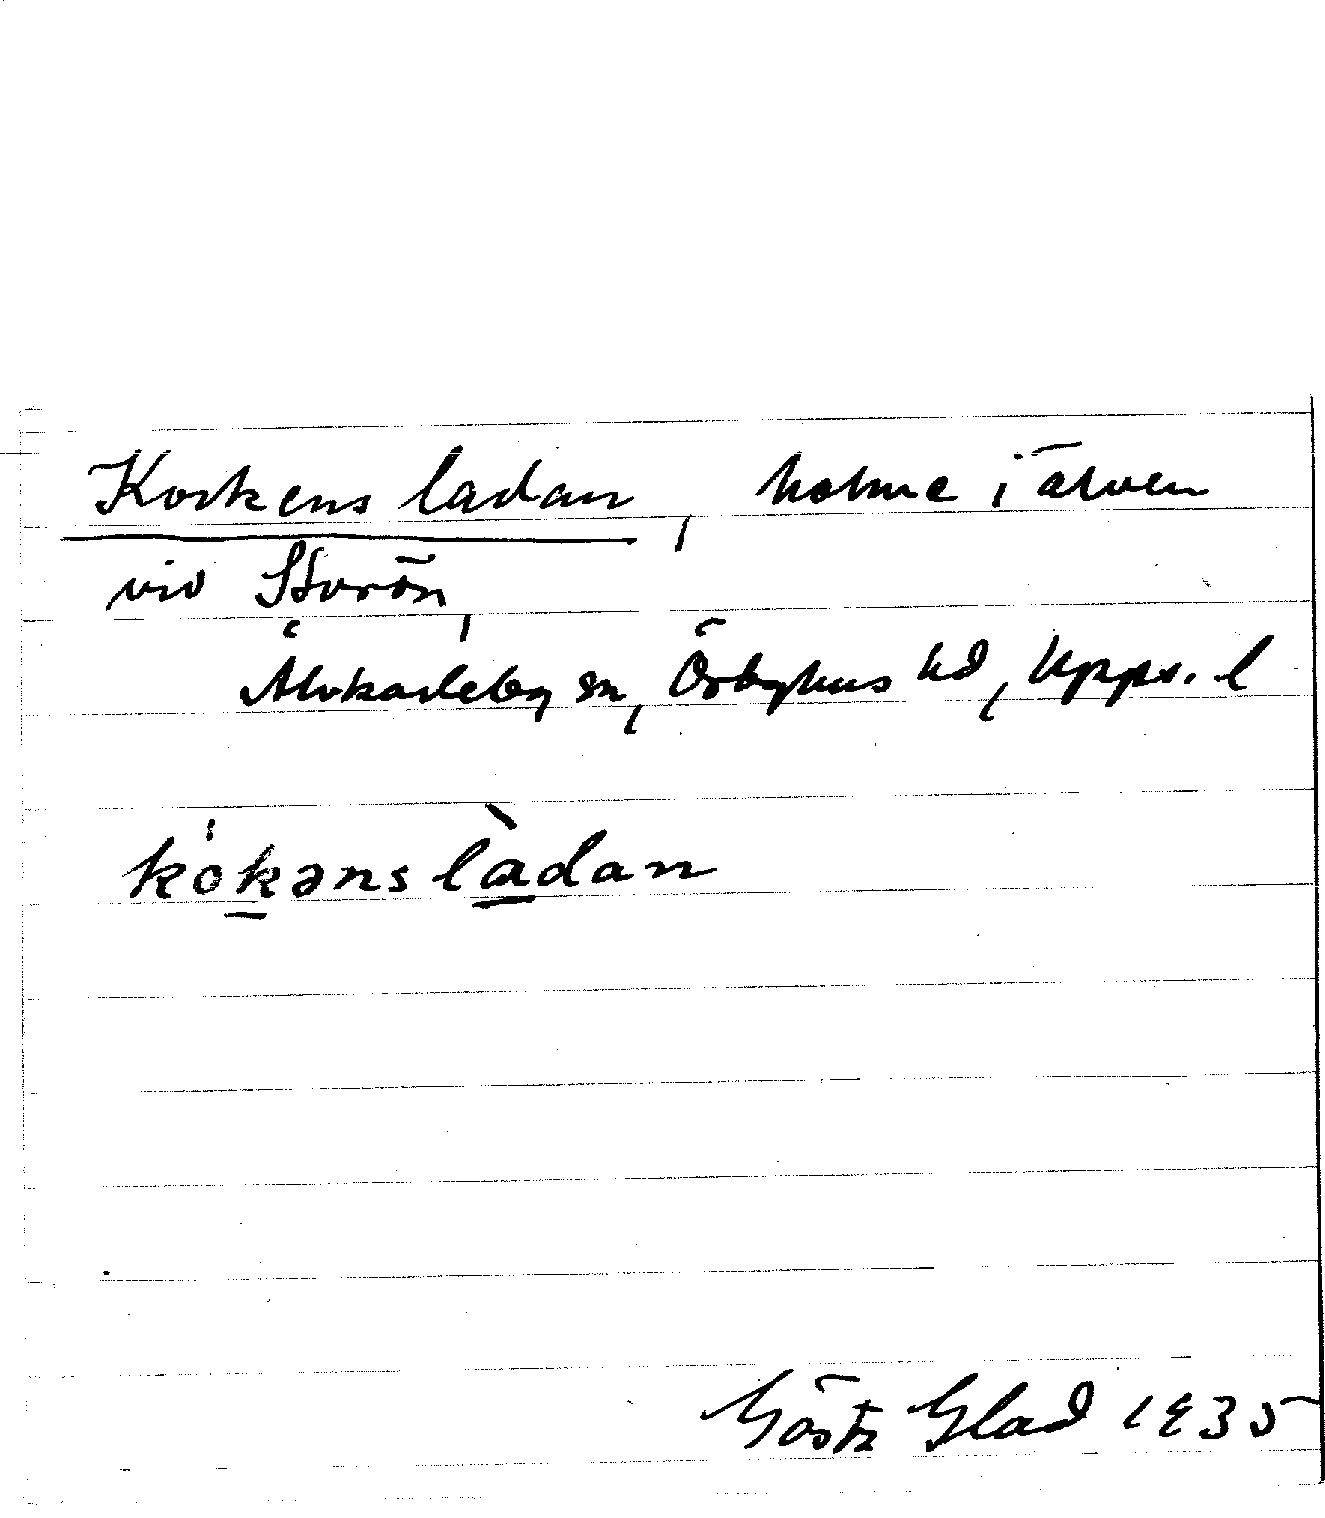 Korkens ladan, holme i älven
vid Storön,
Älvkarleby sn, Örbyhus hd, Upps. l
kókənslàdan
Gösta Glad 1935